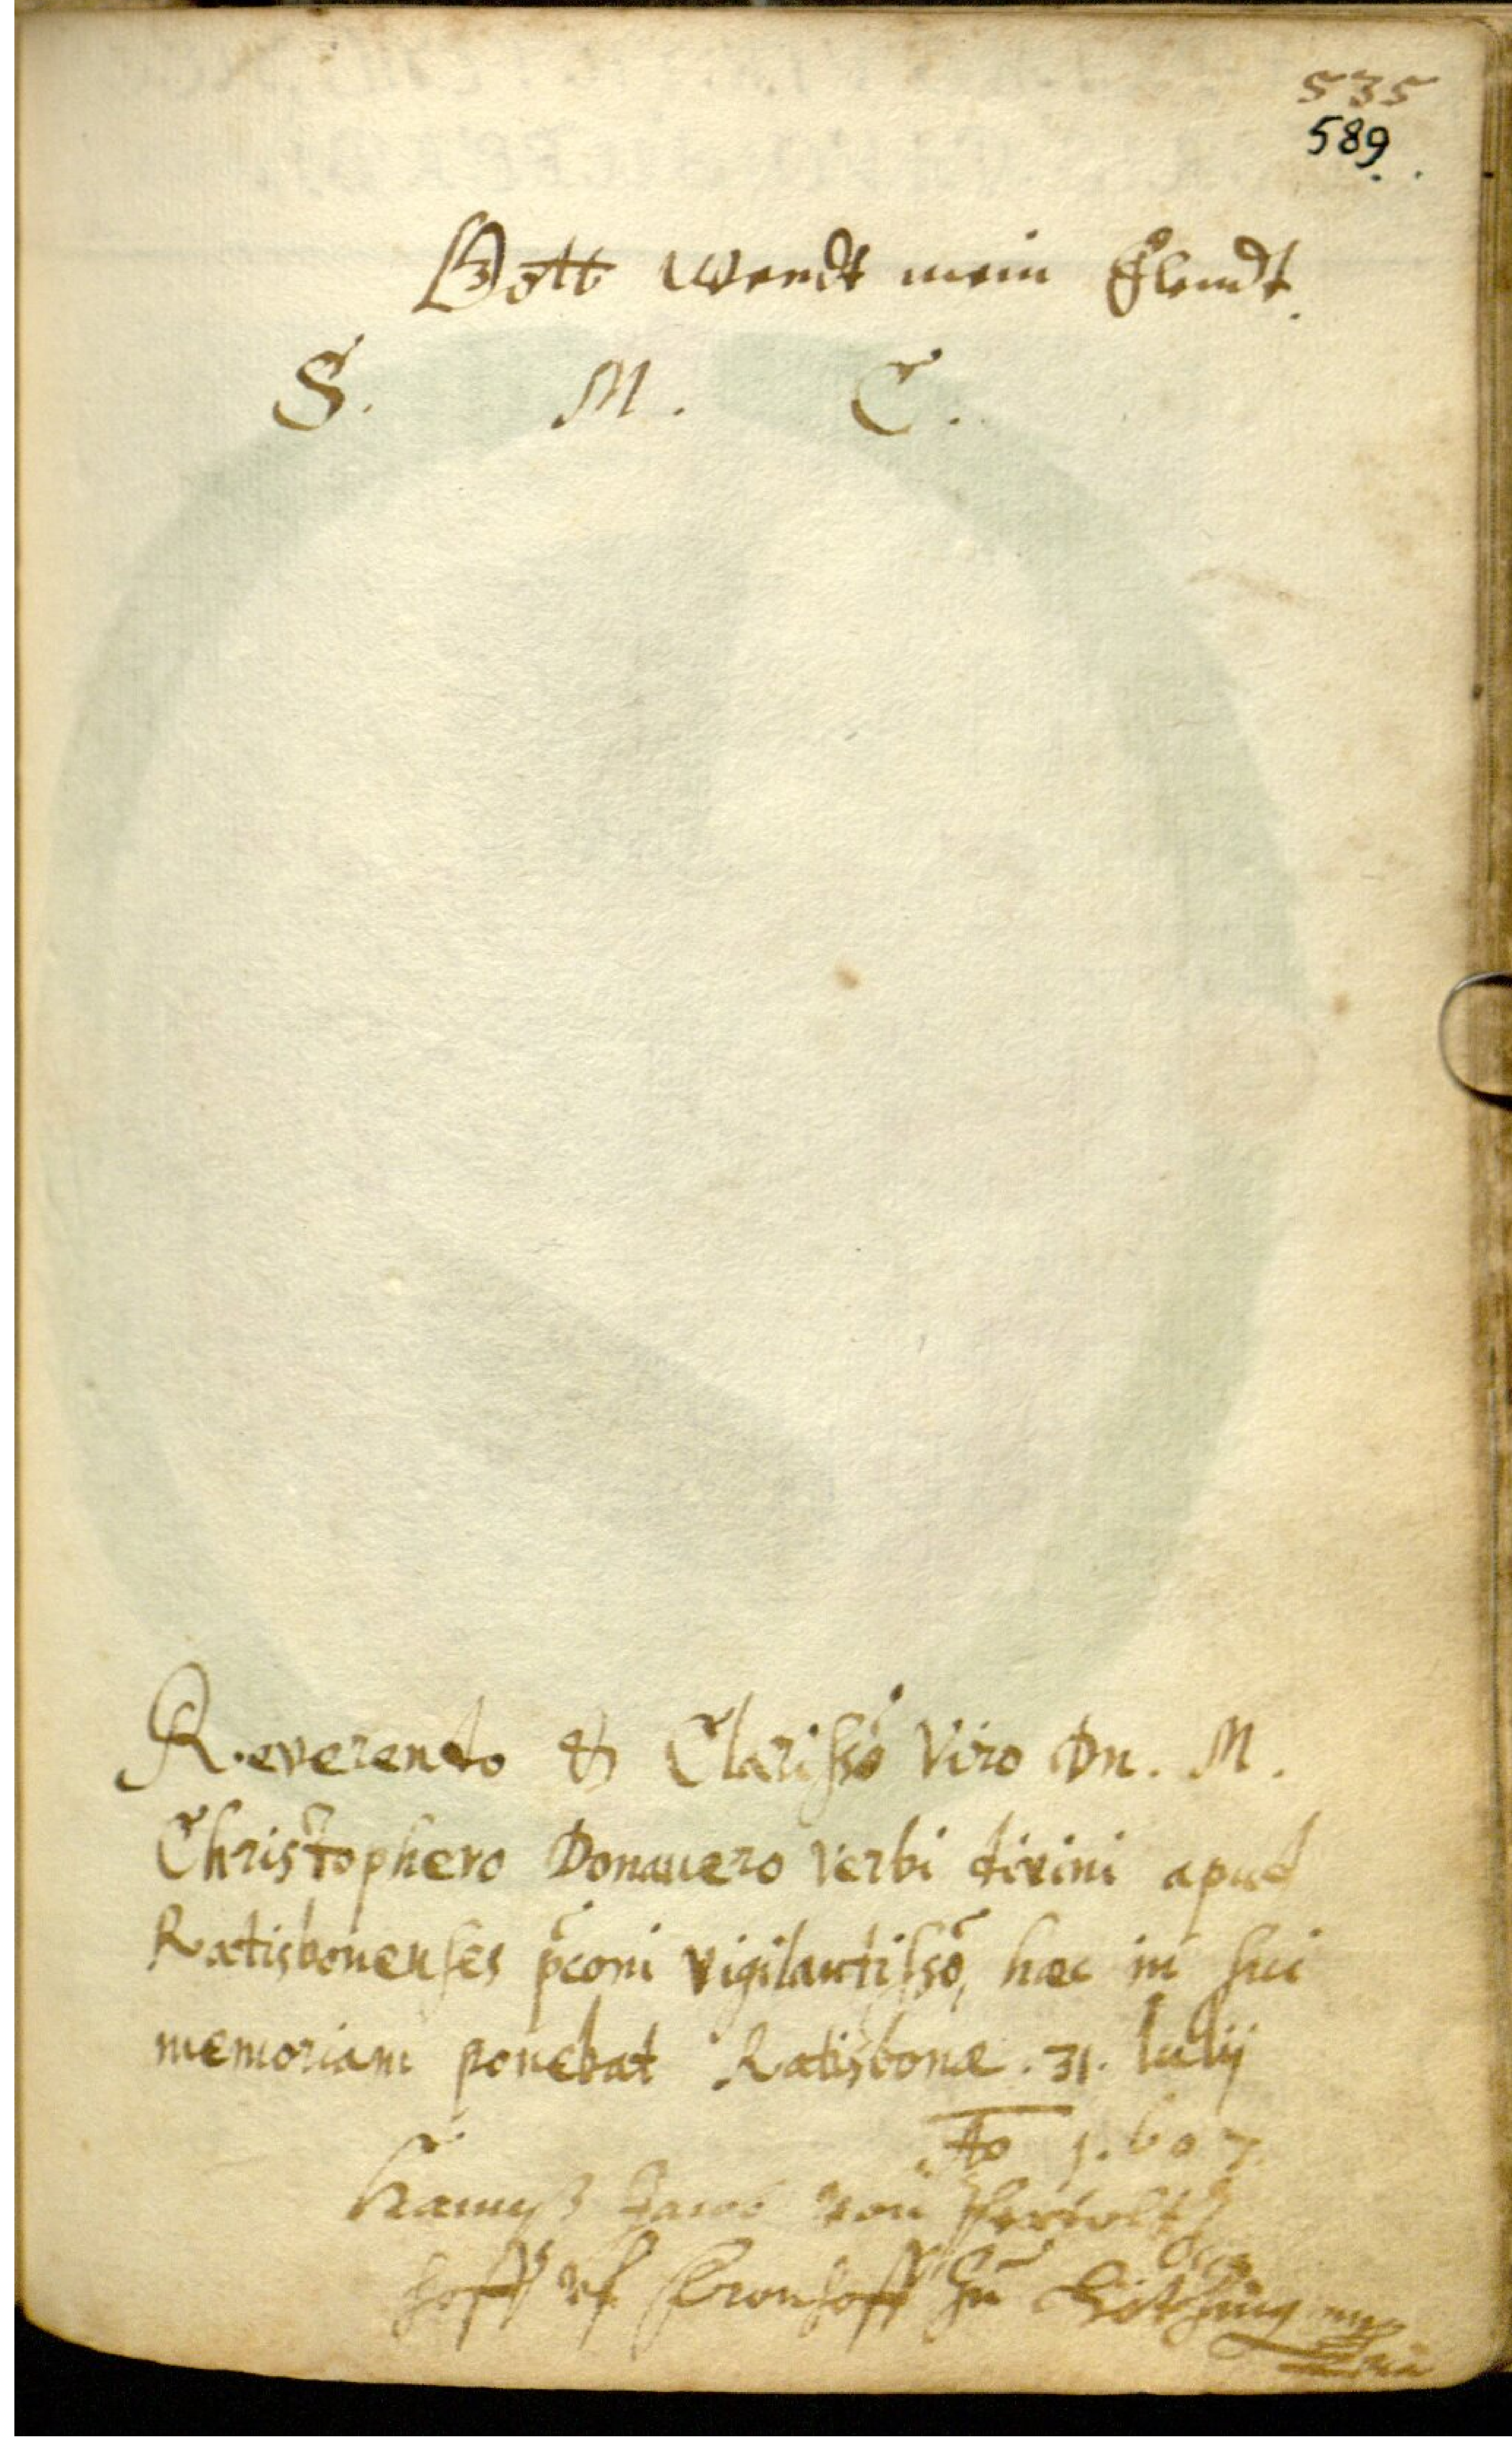 535
589.
Gott wendt mein Elendt.
S. M. C.
Reverendo & Clarisso Viro Dn. M.
Christophero Donauero Verbi divini apud
Ratisbonenses pconi vigilantisso, hæc in sui
memoriam ponebat Ratisbonæ. 31. Iulij
Ao 1.607
Hannß Jacob von
hoff vf Cronhoff zu